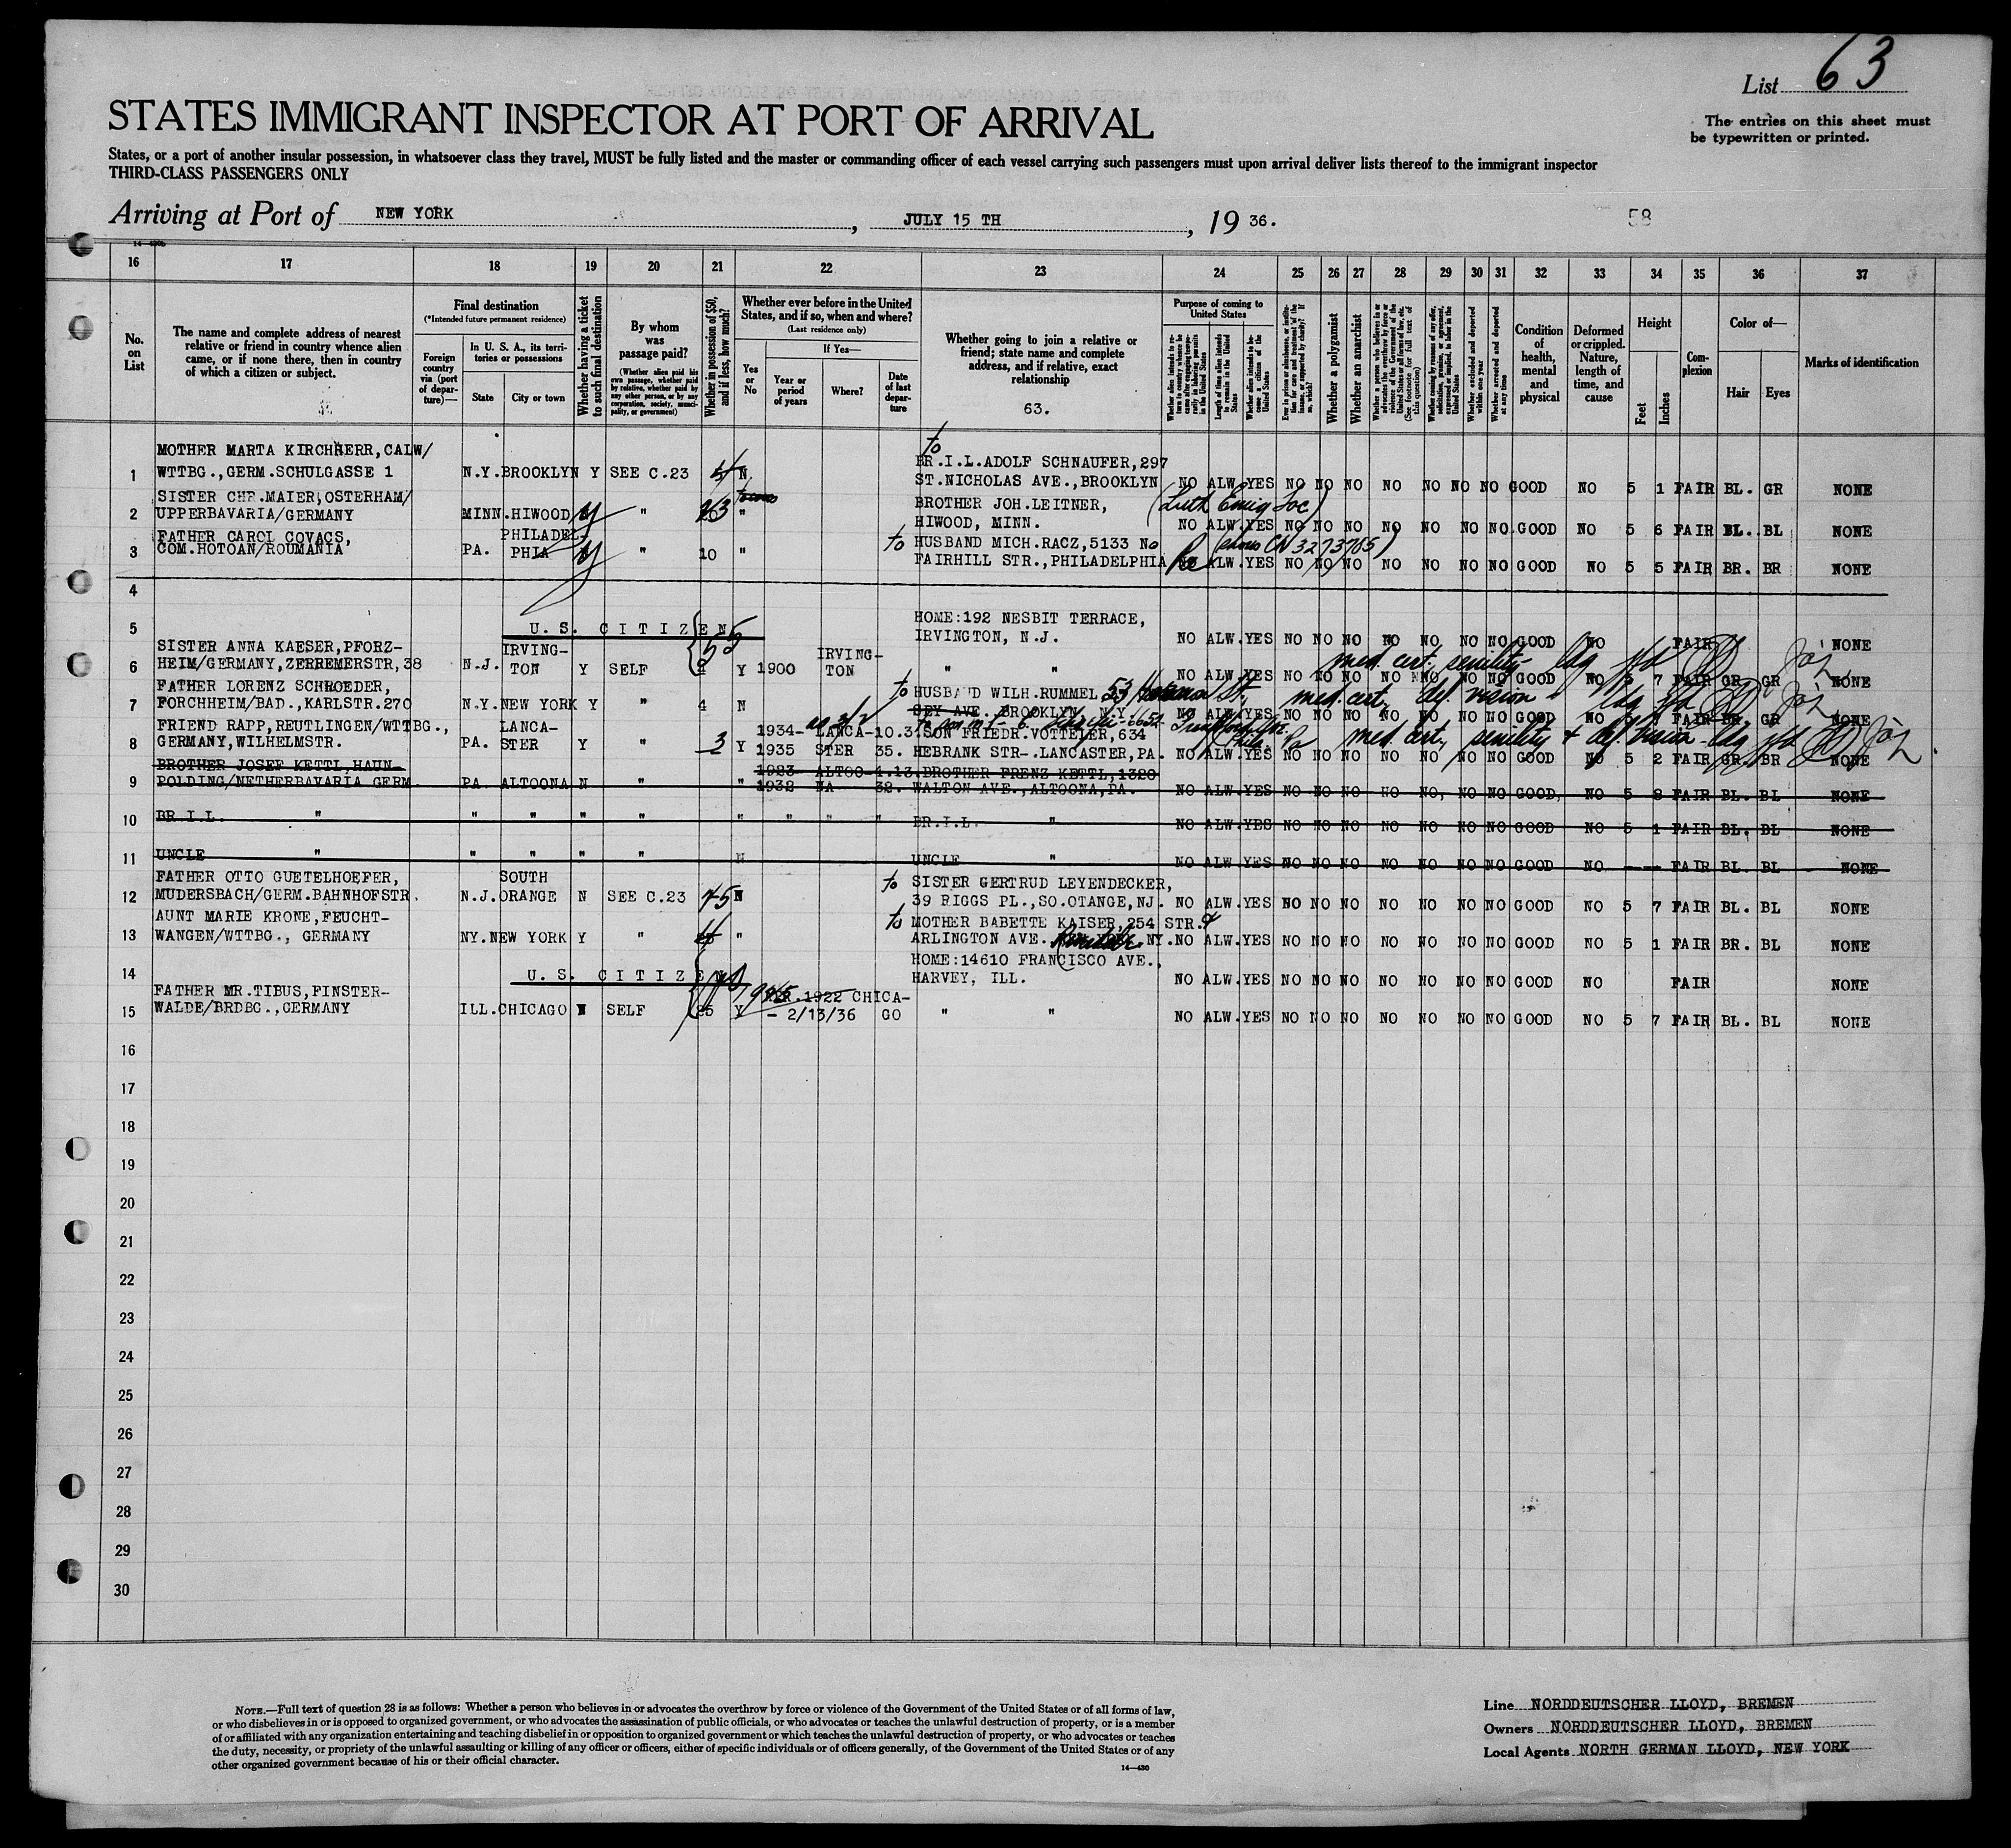 List 63
The entries on this sheet must
be typewritten or printed.
STATES IMMIGRANT INSPECTOR AT PORT OF ARRIVAL
States, or a port of another insular possession, in whatsoever class they travel, MUST be fully listed and the master or commanding officer of each vessel carrying such passengers must upon arrival deliver lists thereof to the immigrant inspector
THIRD-CLASS PASSENGERS ONLY
Arriving at Port of NEW YORK , JULY 15 TH , 19 36. 58
16 17 18 19 20 21 22 23 24 25 26 27 28 29 30 31 32 33 34 35 36 37
No. on List
The name and complete address of nearest
relative or friend in country whence alien
came, or if none there, then in country
of which a citizen or subject.
Final destination
(*Intended future permanent residence)
Foreign country via (port of departure)—
In U. S. A., its territories or possessions
State
City or town
Whether having a ticket to such final destination
By whom was passage paid?
(Whether alien paid his own passage, whether paid by relative, whether paid by any other person, or by any corporation, society, municipality, or government)
Whether in possession of $50, and if less, how much?
Whether ever before in the United
States, and if so, when and where?
(Last residence only)
Yes or No
If Yes—
Year or period of years
Where?
Date of last departure
Whether going to join a relative or
friend; state name and complete
address, and if relative, exact
relationship
63.
Purpose of coming to United States
Length of time alien intends to remain in the United States
Whether alien intends to become a citizen of the United States
Whether a polygamist
Whether an anarchist
Whether excluded and deported within one year
Whether arrested and deported at any time
Condition of health, mental and physical
Deformed or crippled. Nature, length of time, and cause
Height
Feet
Inches
Complexion
Color of—
Hair
Eyes
Marks of identification
MOTHER MARTA KIRCHHERR, CALW/ to
1 WTTBG.,GERM.SCHULGASSE 1 N.Y. BROOKLYN Y SEE C.23 N BR.I.L.ADOLF SCHNAUFER,297
ST.NICHOLAS AVE.,BROOKLYN NO ALW.YES NO NO NO NO NO NO NO GOOD NO 5 1 FAIR BL. GR NONE
SISTER CHR.MAIER,OSTERHAM/ BROTHER JOH.LEITNER, (Luth Emig Soc)
2 UPPERBAVARIA/GERMANY MINN.HIWOOD y " 23 " HIWOOD, MINN. NO ALW.YES NO NO NO NO NO NO NO.GOOD NO 5 6 FAIR BL. BL NONE
FATHER CAROL COVACS, PHILADEL- to HUSBAND MICH.RACZ,5133 No (shows CN 3273765)
3 COM.HOTOAN/ROUMANIA PA. PHIA y " 10 " FAIRHILL STR.,PHILADELPHIA ALW.YES NO NO NO NO NO NO NO GOOD NO 5 5 FAIR BR. BR NONE
4
HOME:192 NESBIT TERRACE,
5 U.S. CITIZEN IRVINGTON, N.J. NO ALW.YES NO NO NO NO NO NO NO GOOD NO FAIR NONE
SISTER ANNA KAESER,PFORZ- IRVING- IRVING- med. cert. senility
6 HEIM/GERMANY,ZERREMERSTR,38 N.J. TON Y SELF Y 1900 TON " " NO ALW.YES NO NO NO NO NO NO NO GOOD NO 5 7 FAIR GR. GR NONE
FATHER LORENZ SCHROEDER, to HUSBAND WILH.RUMMEL 53 St, med. cert. def. vision
7 FORCHHEIM/BAD.,KARLSTR.270 N.Y.NEW YORK Y " 4 N SEY AVE. BROOKLYN, N.Y. NO ALW.YES NO NO NO NO NO NO NO GOOD NO FAIR BR. GR NONE
FRIEND RAPP,REUTLINGEN/WTTBG., LANCA- 1934- LANCA-10.3. SON FRIEDR.VOTTELER,634
8 GERMANY,WILHELMSTR. PA. STER Y " 3 Y 1935 STER 35. HEBRANK STR-.LANCASTER,PA. Phila. Pa med cert. senility & def. vision NO ALW.YES NO NO NO NO NO NO NO GOOD NO 5 2 FAIR GR. BR NONE
BROTHER JOSEF KETTL,HAUN- 1923- ALTOO-4.13. BROTHER FRENZ KETTL,1320
9 POLDING/NETHERBAVARIA GERM. PA. ALTOONA N " 1932 NA 32. WALTON AVE.,ALTOONA,PA. NO ALW.YES NO NO NO NO NO NO NO GOOD, NO 5 8 FAIR BL. BL NONE
10 BR.I.L. " " " " " " " " " BR.I.L. " NO ALW.YES NO NO NO NO NO NO NO GOOD NO 5 1 FAIR BL. BL NONE
11 UNCLE " " " " " N UNCLE " NO ALW YES NO NO NO NO NO NO NO GOOD NO — — FAIR BL. BL NONE
FATHER OTTO GUETELHOEFER, SOUTH to SISTER GERTRUD LEYENDECKER,
12 MUDERSBACH/GERM.BAHNHOFSTR. N.J.ORANGE N SEE C.23 45 N 39 RIGGS PL.,SO.OTANGE,NJ. NO ALW.YES NO NO NO NO NO NO NO GOOD NO 5 7 FAIR BL. BL NONE
AUNT MARIE KRONE,FEUCHT- to MOTHER BABETTE KAISER,254 STR.
13 WANGEN/WTTBG., GERMANY NY.NEW YORK Y " " ARLINGTON AVE. NY.NO ALW.YES NO NO NO NO NO NO NO GOOD NO 5 1 FAIR BR. BL NONE
HOME:14610 FRANCISCO AVE.,
14 U.S. CITIZEN HARVEY, ILL. NO ALW.YES NO NO NO NO NO NO NO GOOD NO FAIR NONE
FATHER MR.TIBUS,FINSTER- 1922 CHICA-
15 WALDE/BRDBG.,GERMANY ILL.CHICAGO N SELF Y - 2/13/36 GO " " NO ALW.YES NO NO NO NO NO NO NO GOOD NO 5 7 FAIR BL. BL NONE
16
17
18
19
20
21
22
23
24
25
26
27
28
29
30
NOTE.—Full text of question 28 is as follows: Whether a person who believes in or advocates the overthrow by force or violence of the Government of the United States or of all forms of law,
or who disbelieves in or is opposed to organized government, or who advocates the assassination of public officials, or who advocates or teaches the unlawful destruction of property, or is a member
of or affiliated with any organization entertaining and teaching disbelief in or opposition to organized government or which teaches the unlawful destruction of property, or who advocates or teaches
the duty, necessity, or propriety of the unlawful assaulting or killing of any officer or officers, either of specific individuals or of officers generally, of the Government of the United States or of any
other organized government because of his or their official character.
14—430
Line NORDDEUTSCHER LLOYD, BREMEN
Owners NORDDEUTSCHER LLOYD, BREMEN
Local Agents NORTH GERMAN LLOYD, NEW YORK